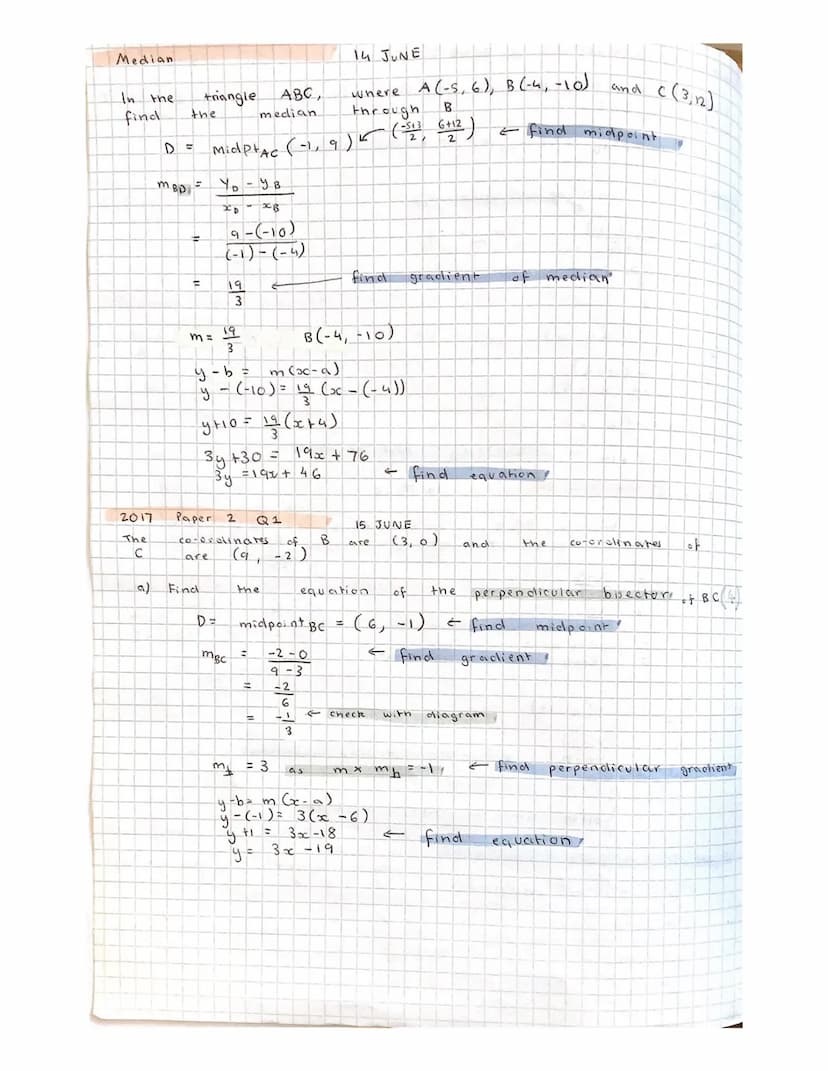 Median 14 JUNE
In the triangle ABC, where A(-5, 6), B(-4, -10) and C(3,12)
find the median through B
D = midpt_AC (-1, 9) ↙ (-5+3/2, 6+12/2) ← find midpoint
m_BD = y_D - y_B / x_D - x_B
= 9-(-10) / (-1)-(-4)
= 19/3 ← find gradient of median
m = 19/3 B(-4, -10)
y-b = m(x-a)
y - (-10) = 19/3 (x - (-4))
y+10 = 19/3 (x+4)
3y+30 = 19x + 76
3y = 19x + 46 ← find equation
2017 Paper 2 Q1 15 JUNE
The co-ordinates of B are (3,0) and the co-ordinates of
C are (9, -2)
a) Find the equation of the perpendicular bisector of BC (4)
D = midpoint_BC = (6, -1) ← find midpoint
m_BC = -2-0 / 9-3 ← find gradient
= -2/6
= -1/3 ← check with diagram
m_⊥ = 3 as m × m_⊥ = -1 ← find perpendicular gradient
y-b = m(x-a)
y-(-1) = 3(x-6)
y+1 = 3x-18 ← find equation
y = 3x-19